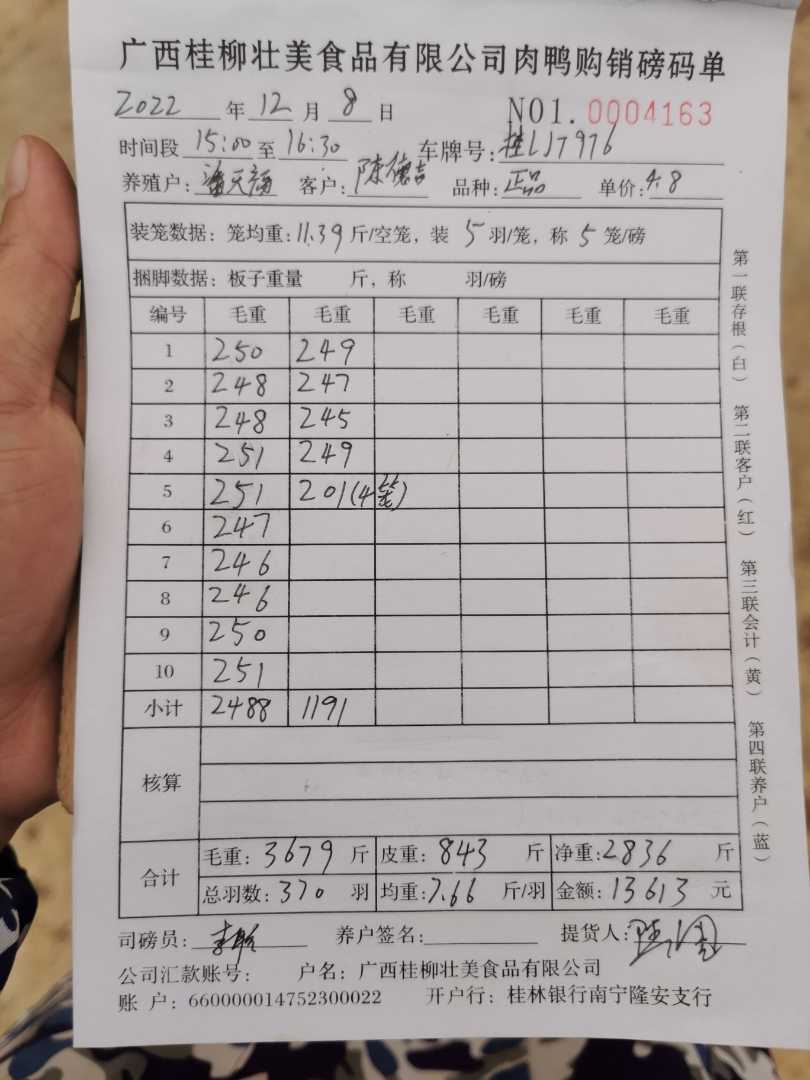 广西桂柳壮美食品有限公司肉鸭购销磅码单
2022 年 12 月 8 日 NO1. 0004163
时间段 15:00 至 16:30 车牌号: 桂LJ7976
养殖户: 潘天福 客户: 陈德吉 品种: 正品 单价: 4.8
装笼数据: 笼均重: 11.39 斤/空笼, 装 5 羽/笼, 称 5 笼/磅
捆脚数据: 板子重量 斤, 称 羽/磅
编号 毛重 毛重 毛重 毛重 毛重 毛重
1 250 249
2 248 247
3 248 245
4 251 249
5 251 201(4笼)
6 247
7 246
8 246
9 250
10 251
小计 2488 1191
核算
合计
毛重: 3679 斤 皮重: 843 斤 净重: 2836 斤
总羽数: 370 羽 均重: 7.66 斤/羽 金额: 13613 元
司磅员: 养户签名: 提货人:
公司汇款账号: 户名: 广西桂柳壮美食品有限公司
账 户: 660000014752300022 开户行: 桂林银行南宁隆安支行
第一联存根(白) 第二联客户(红) 第三联会计(黄) 第四联养户(蓝)